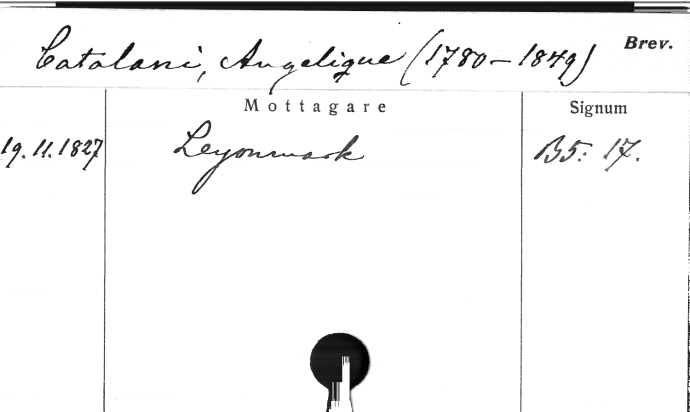 Catalani, Angelique (1780–1849) Brev.
Mottagare Signum
19.11.1827 Leyonmark B5: 17.